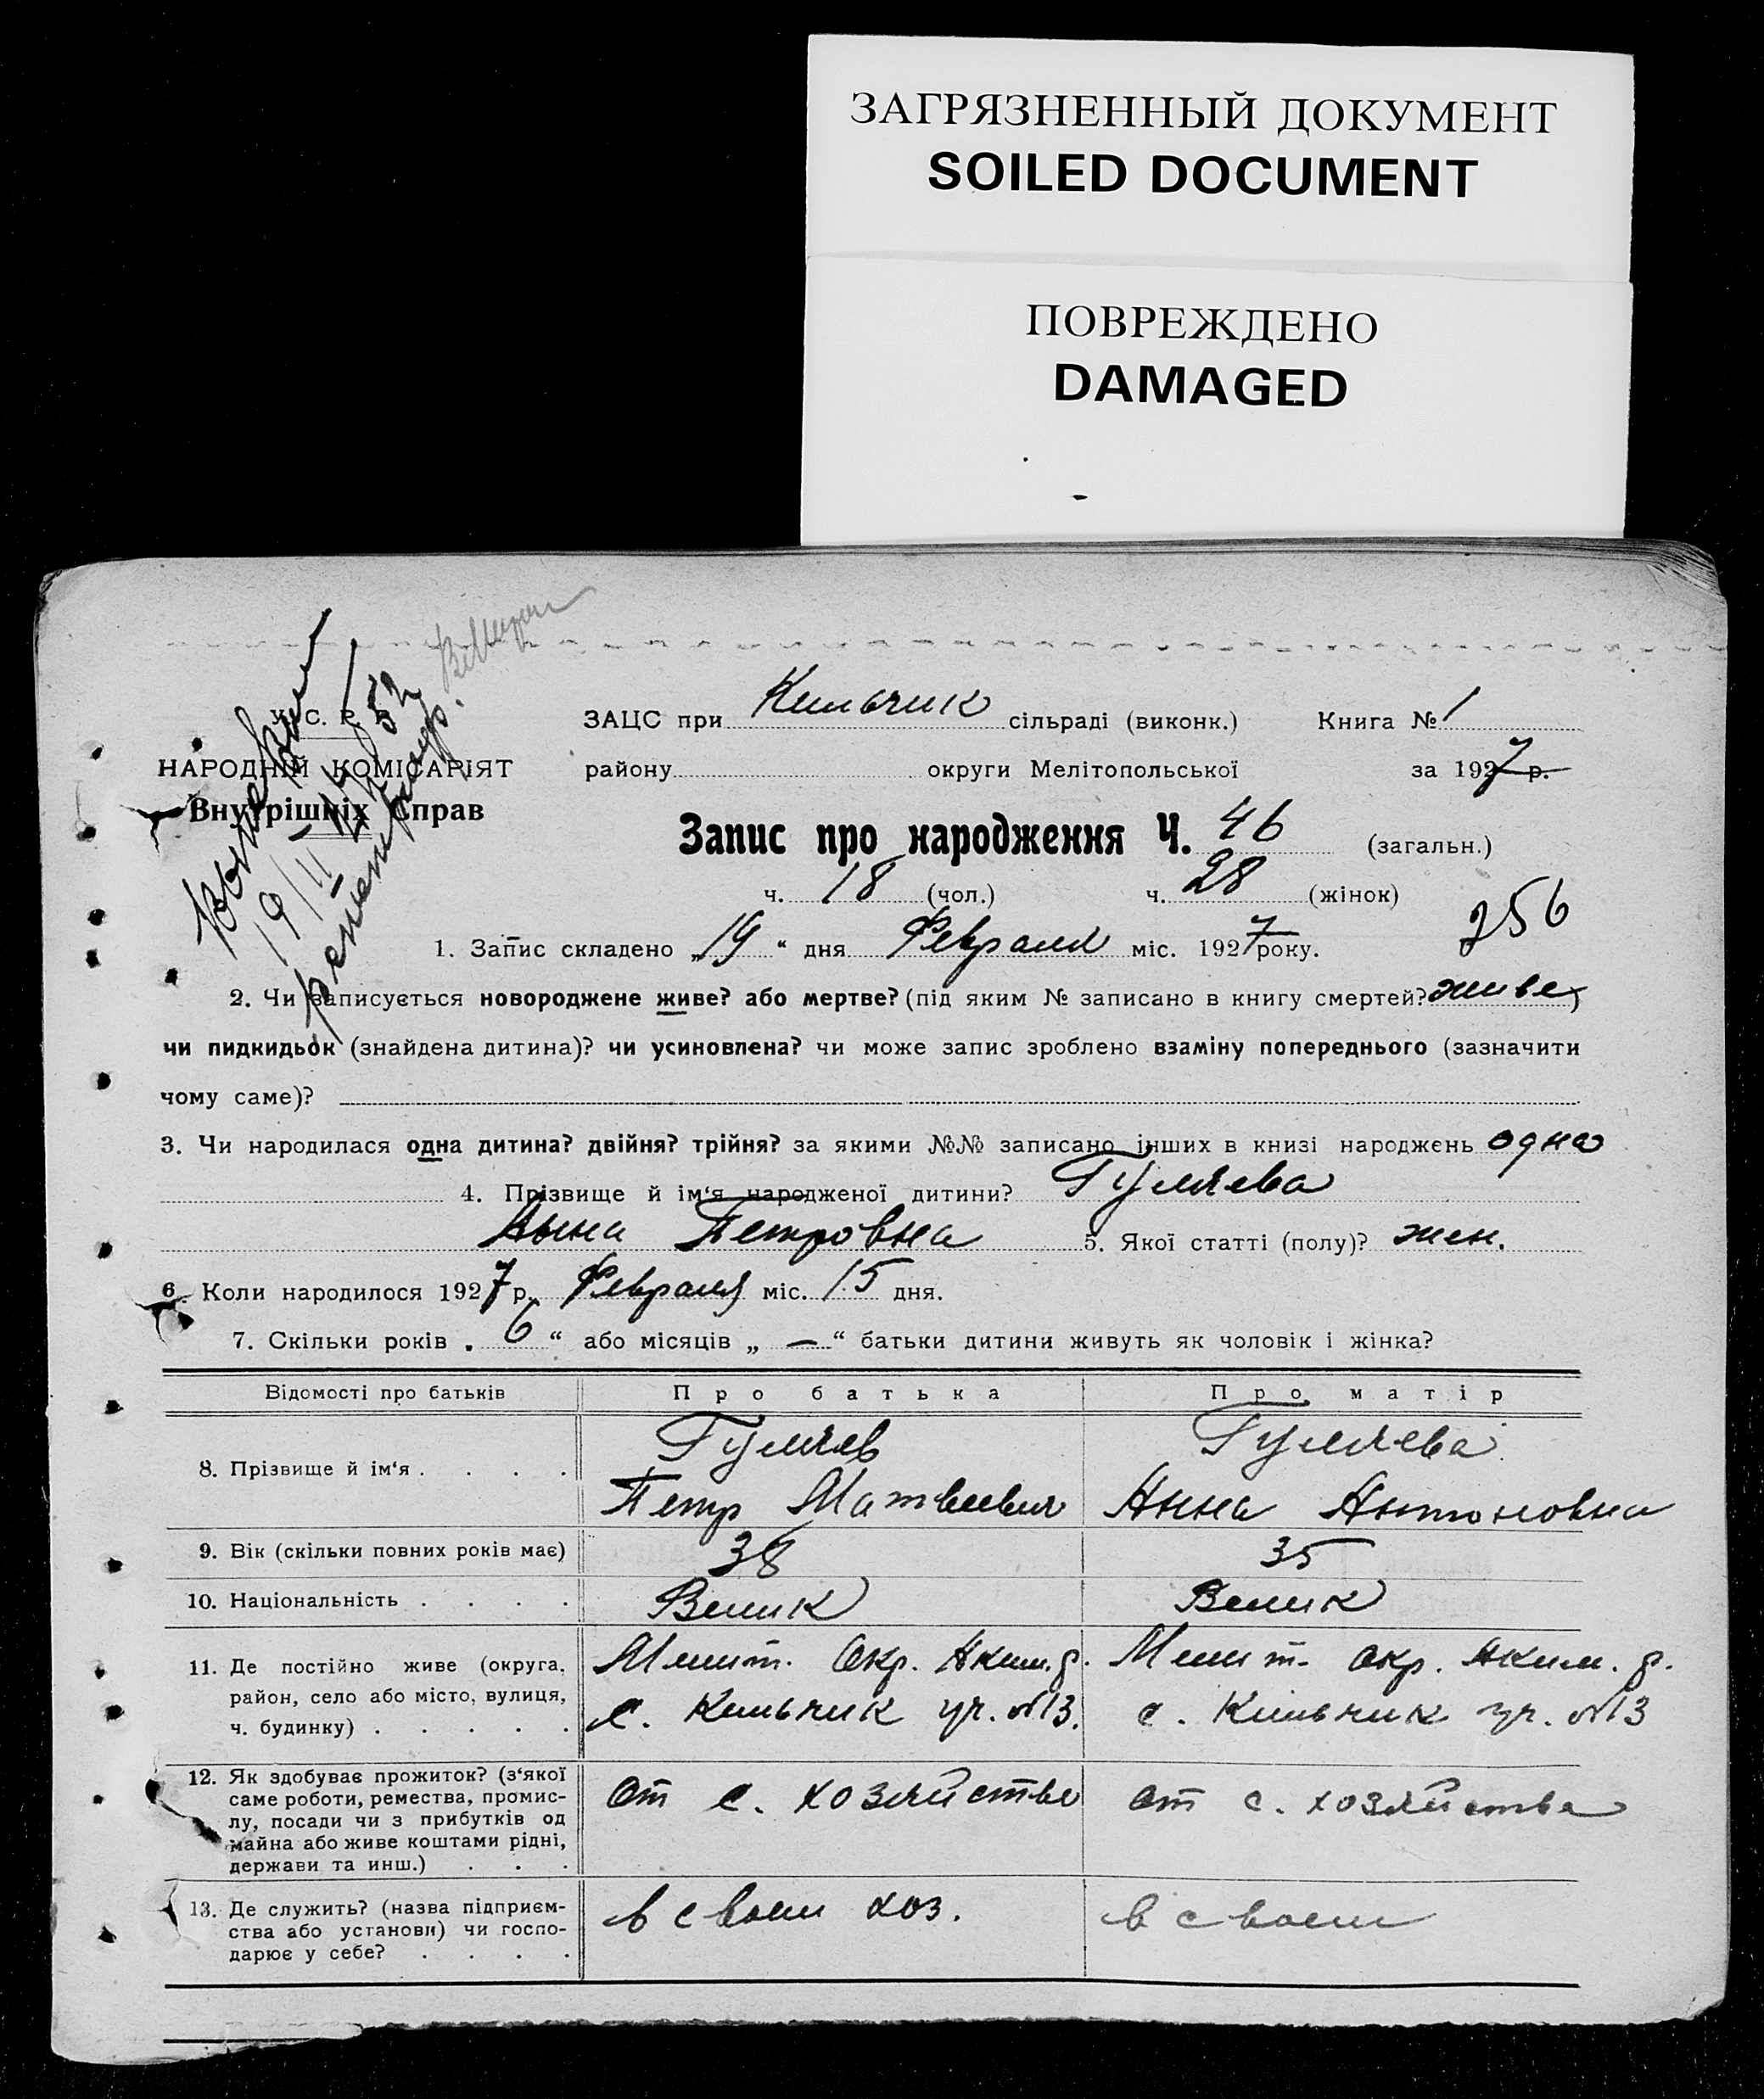 ЗАГРЯЗНЕННЫЙ ДОКУМЕНТ
SOILED DOCUMENT
ПОВРЕЖДЕНО
DAMAGED
У. С. Р. Р.
НАРОДНІЙ КОМІСАРІЯТ
Внутрішніх Справ
19/II
ЗАЦС при Кильчик сільраді (виконк.) Книга № 1
району округи Мелітопольської за 1927 р.
Запис про народження Ч. 46 (загальн.)
ч. 18 (чол.) ч. 28 (жінок)
256
1. Запис складено „19“ дня Февраля міс. 1927 року.
2. Чи записується новороджене живе? або мертве? (під яким № записано в книгу смертей? живе)
чи пидкидьок (знайдена дитина)? чи усиновлена? чи може запис зроблено взаміну попереднього (зазначити
чому саме)?
3. Чи народилася одна дитина? двійня? трійня? за якими №№ записано інших в книзі народжень одна
4. Прізвище й ім‘я народженої дитини? Гуляева
Анна Петровна 5. Якої статті (полу)? жен.
6. Коли народилося 1927 р. Февраля міс. 15 дня.
7. Скільки років „ 6 “ або місяців „ — “ батьки дитини живуть як чоловік і жінка?
Відомості про батьків Про батька Про матір
8. Прізвище й ім‘я . . . . Гуляев Гуляева
Петр Матвеевич Анна Антоновна
9. Вік (скільки повних років має) 38 35
10. Національність . . . . Велик Велик
11. Де постійно живе (округа, район, село або місто, вулиця, ч. будинку) . . . . .
Мелит. Окр. Аким. р. Мелит. Окр. Аким. р.
с. Кильчик уч. №13. с. Кильчик уч. №13
12. Як здобуває прожиток? (з‘якої саме роботи, ремества, промислу, посади чи з прибутків од майна або живе коштами рідні, держави та инш.) . . .
От с. хозяйства от с. хозяйства
13. Де служить? (назва підприємства або установи) чи господарює у себе? . . . .
в своем хоз. в своем